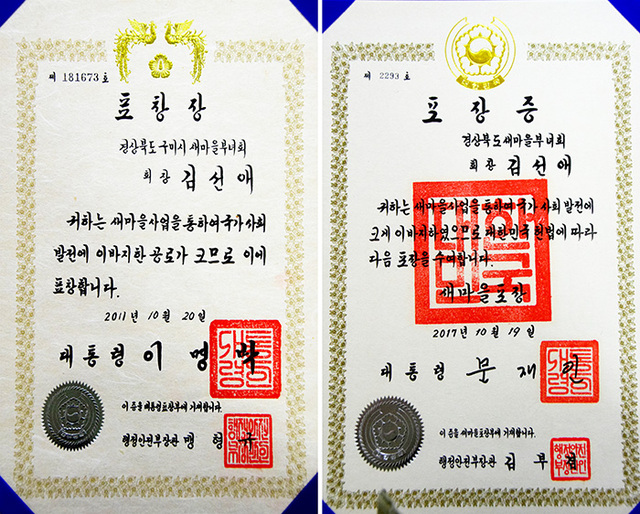 제 181673 호
표창장
경상북도 구미시 새마을부녀회
회장 김선애
귀하는 새마을사업을 통하여 국가 사회
발전에 이바지한 공로가 크므로 이에
표창합니다.
2011년 10월 20일
대통령 이명박
이 증을 대통령표창부에 기재합니다.
행정안전부장관 맹형규
제 2293 호
포장증
경상북도새마을부녀회
회장 김선애
귀하는 새마을사업을 통하여 국가 사회 발전에
크게 이바지하였으므로 대한민국 헌법에 따라
다음 포장을 수여합니다.
새마을포장
2017년 10월 19일
대통령 문재인
이 증을 새마을포장부에 기재합니다.
행정안전부장관 김부겸